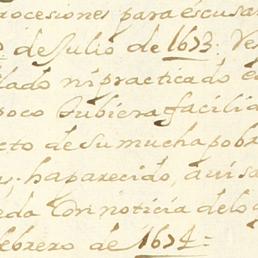 rocesiones para escusar
de Julio de 1673. Ve
lado ni practicado e
poco tubiera facilid
cto de su mucha pob
haparecido, avisa
eda Con noticia de lo
febrero de 1674=